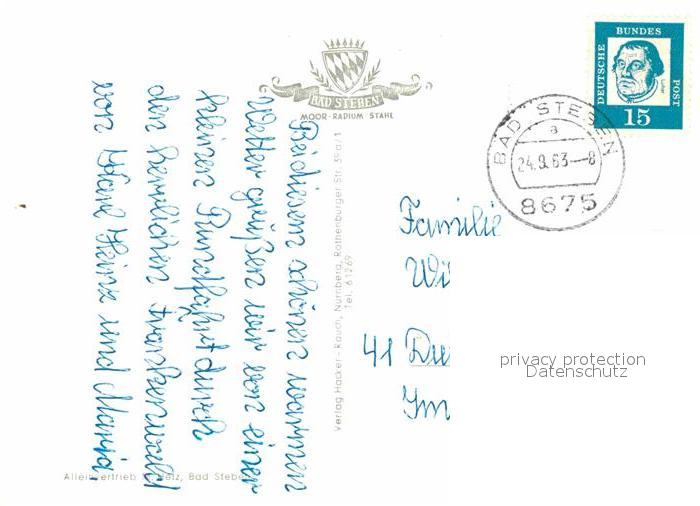 BAD STEBEN
MOOR-RADIUM STAHL
DEUTSCHE BUNDES POST
Luther
15
BAD STEBEN
a
24.9.63-8
8675
Bei diesem schönen warmen
Wetter grüßen wir von einer
kleinen Rundfahrt durch
den herrlichen Frankenwald
von Karl Heinz und Maria.
Verlag Hacker-Rauch, Nürnberg, Rothenburger Str. 39a/1
Tel. 61269
Familie
Wi
41 Du
Im
privacy protection
Datenschutz
Alleinvertrieb Bad Steben